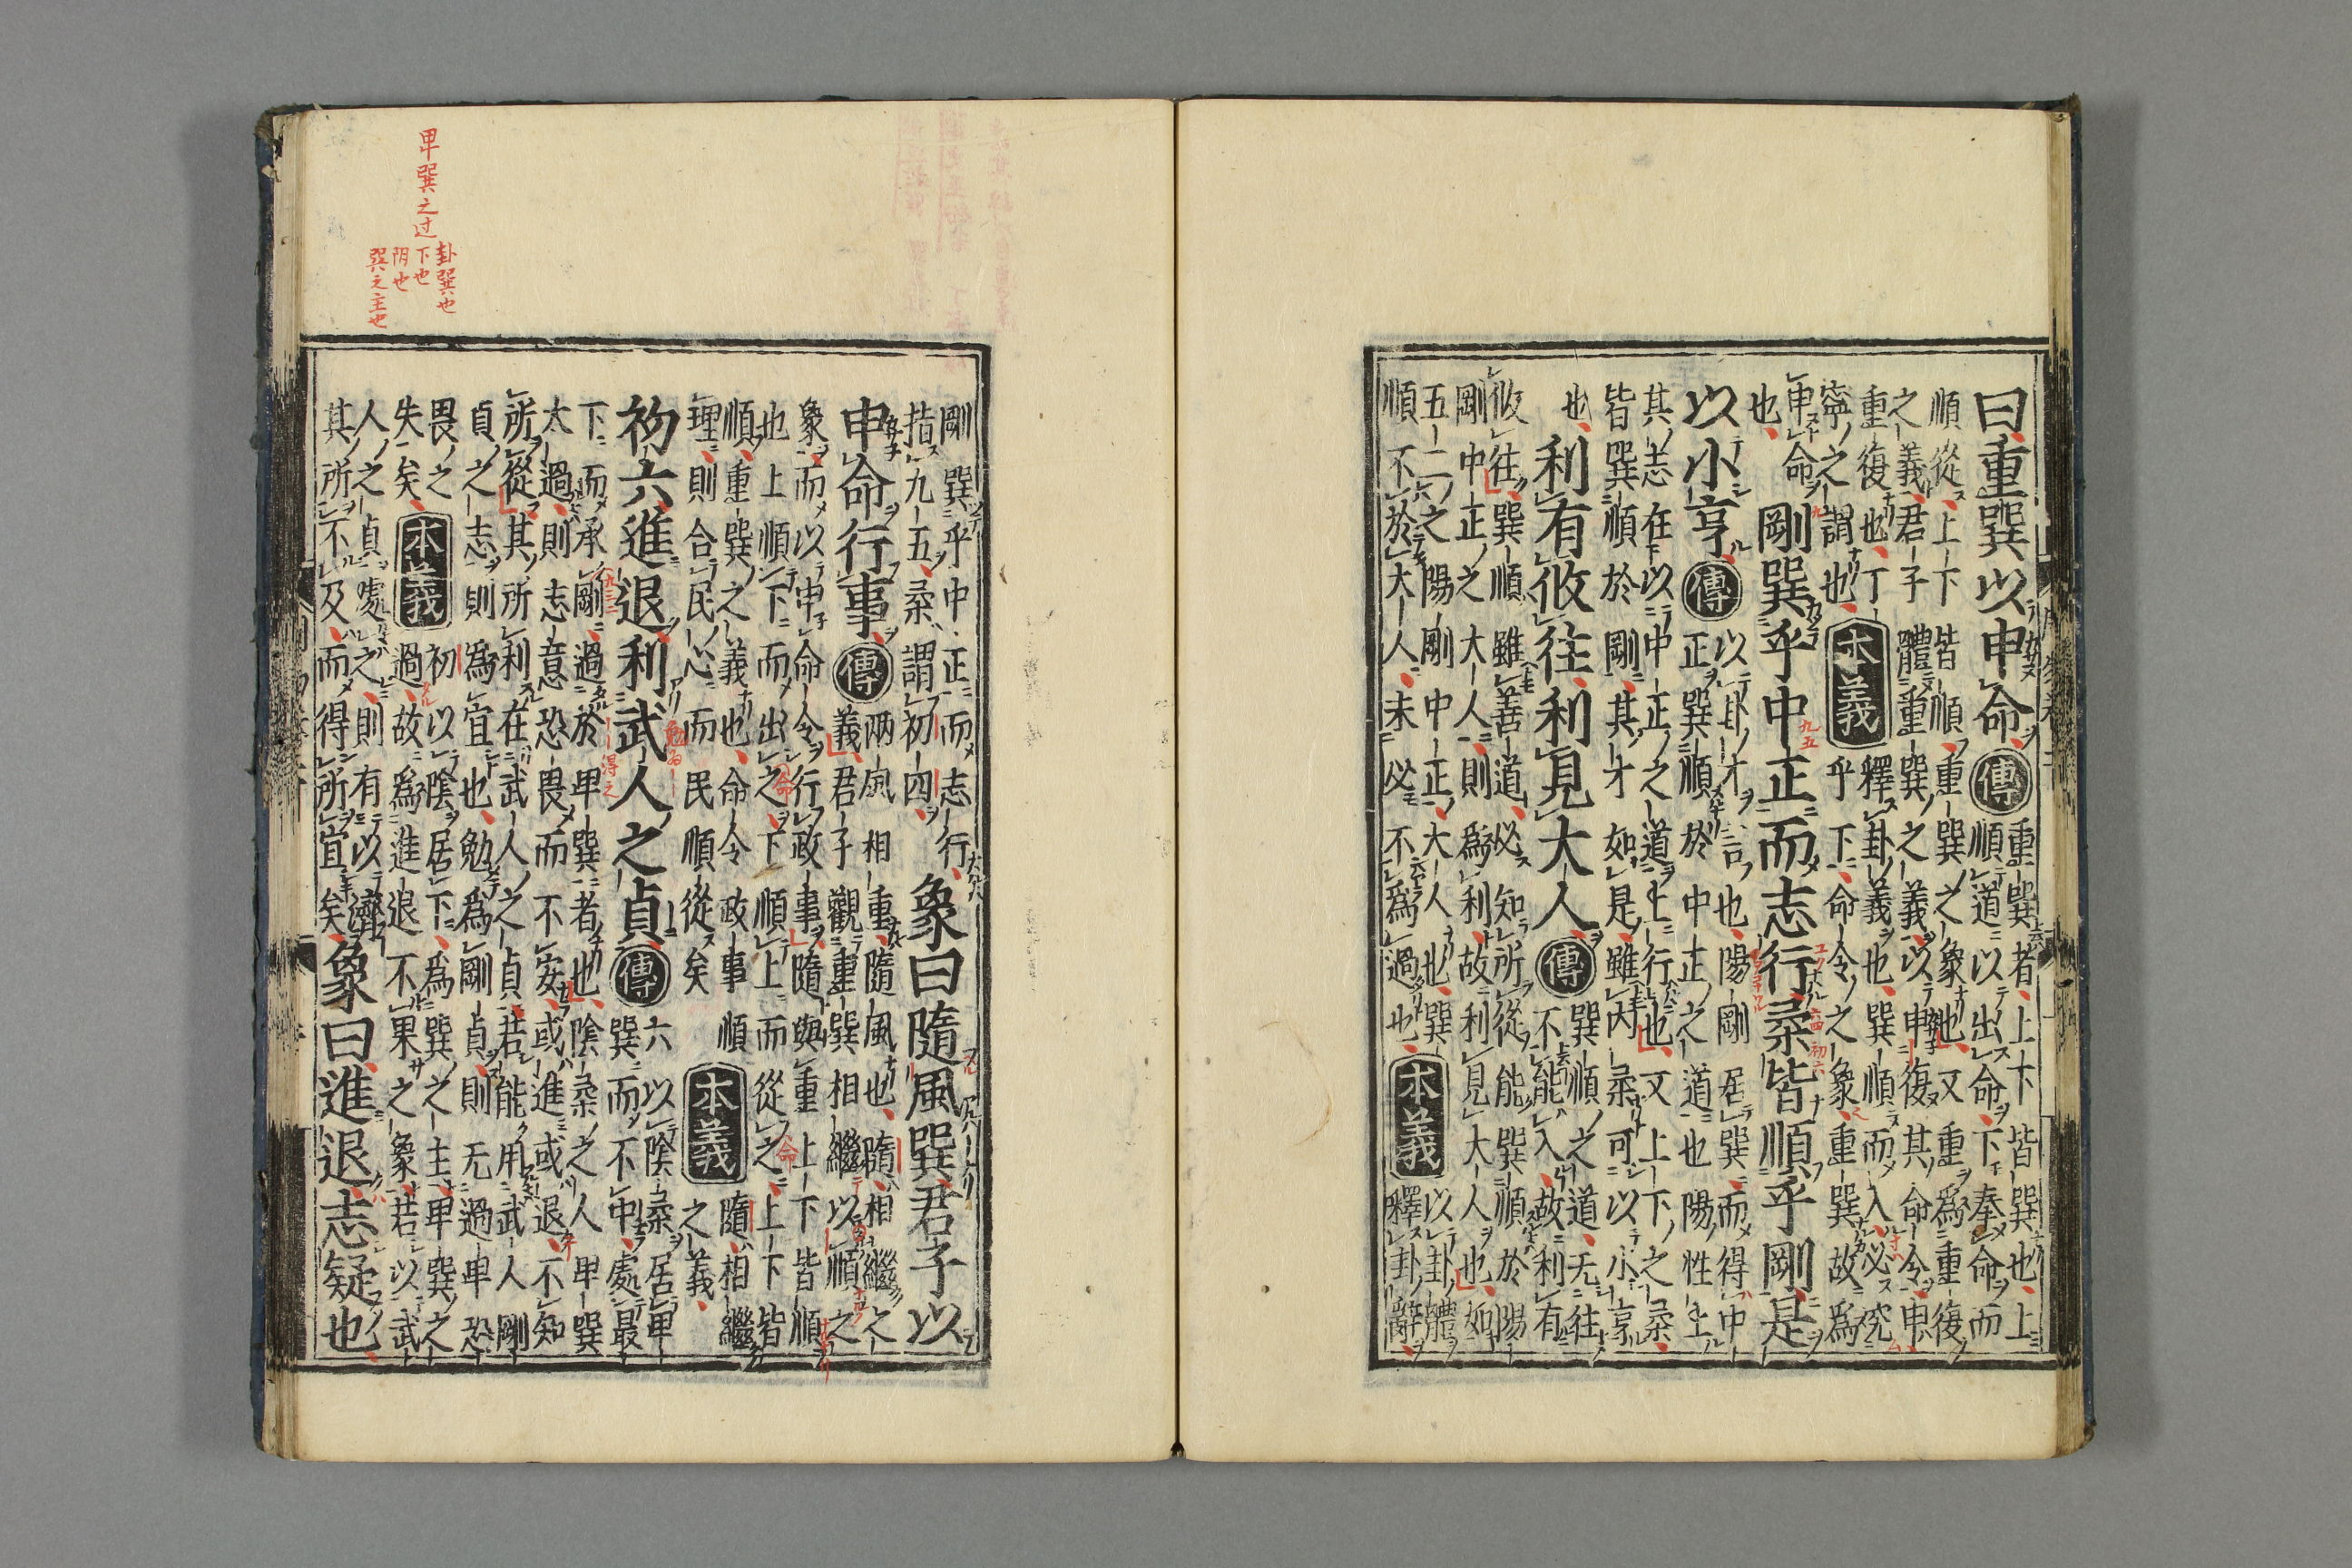 曰重巽以申命傳重巽者上下皆巽也上
順道以出命下奉命而
順從上下皆順重巽之象也又重爲重復
之義君子體重巽之義以申復其命令申
重復也丁
寧之謂也
本義釋卦義也巽順而入必究
乎下命令之象重巽故爲
申命
也
剛巽乎中正而志行柔皆順乎剛是
以小亨傳以卦才言也陽剛居巽而得中
正巽順於中正之道也陽性上
其志在以中正之道上行也又上下之柔
皆巽順於剛其才如是雖內柔可以小亨
也
利有攸往利見大人傳巽順之道无往
不能入故利有
攸往巽順雖善道必知所從能巽順於陽
剛中正之大人則爲利故利見大人也如
五二之陽剛中正大人也巽
順不於大人未必不爲過也
本義以卦體
釋卦辭
剛巽乎中正而志行
指九五柔謂初四
象曰隨風巽君子以
申命行事傳兩風相重隨風也隨相繼之
義君子觀重巽相繼以順之
象而以申命令行政事隨與重上下皆順
也上順下而出之下順上而從之上下皆
順重巽之義也命令政事順
理則合民心而民順從矣
本義隨相繼
之義
初六進退利武人之貞傳六以陰柔居卑
巽而不中處最
下而承剛過於卑巽者也陰柔之人卑巽
太過則志意恐畏而不安或進或退不知
所從其所利在武人之貞若能用武人剛
貞之志則爲宜也勉爲剛貞則无過卑恐
畏之
失矣
本義初以陰居下爲巽之主卑巽之
過故爲進退不果之象若以武
人之貞處之則有以濟
其所不及而得所宜矣
象曰進退志疑也
卑巽之过
卦巽也
下也
阴也
巽之主也